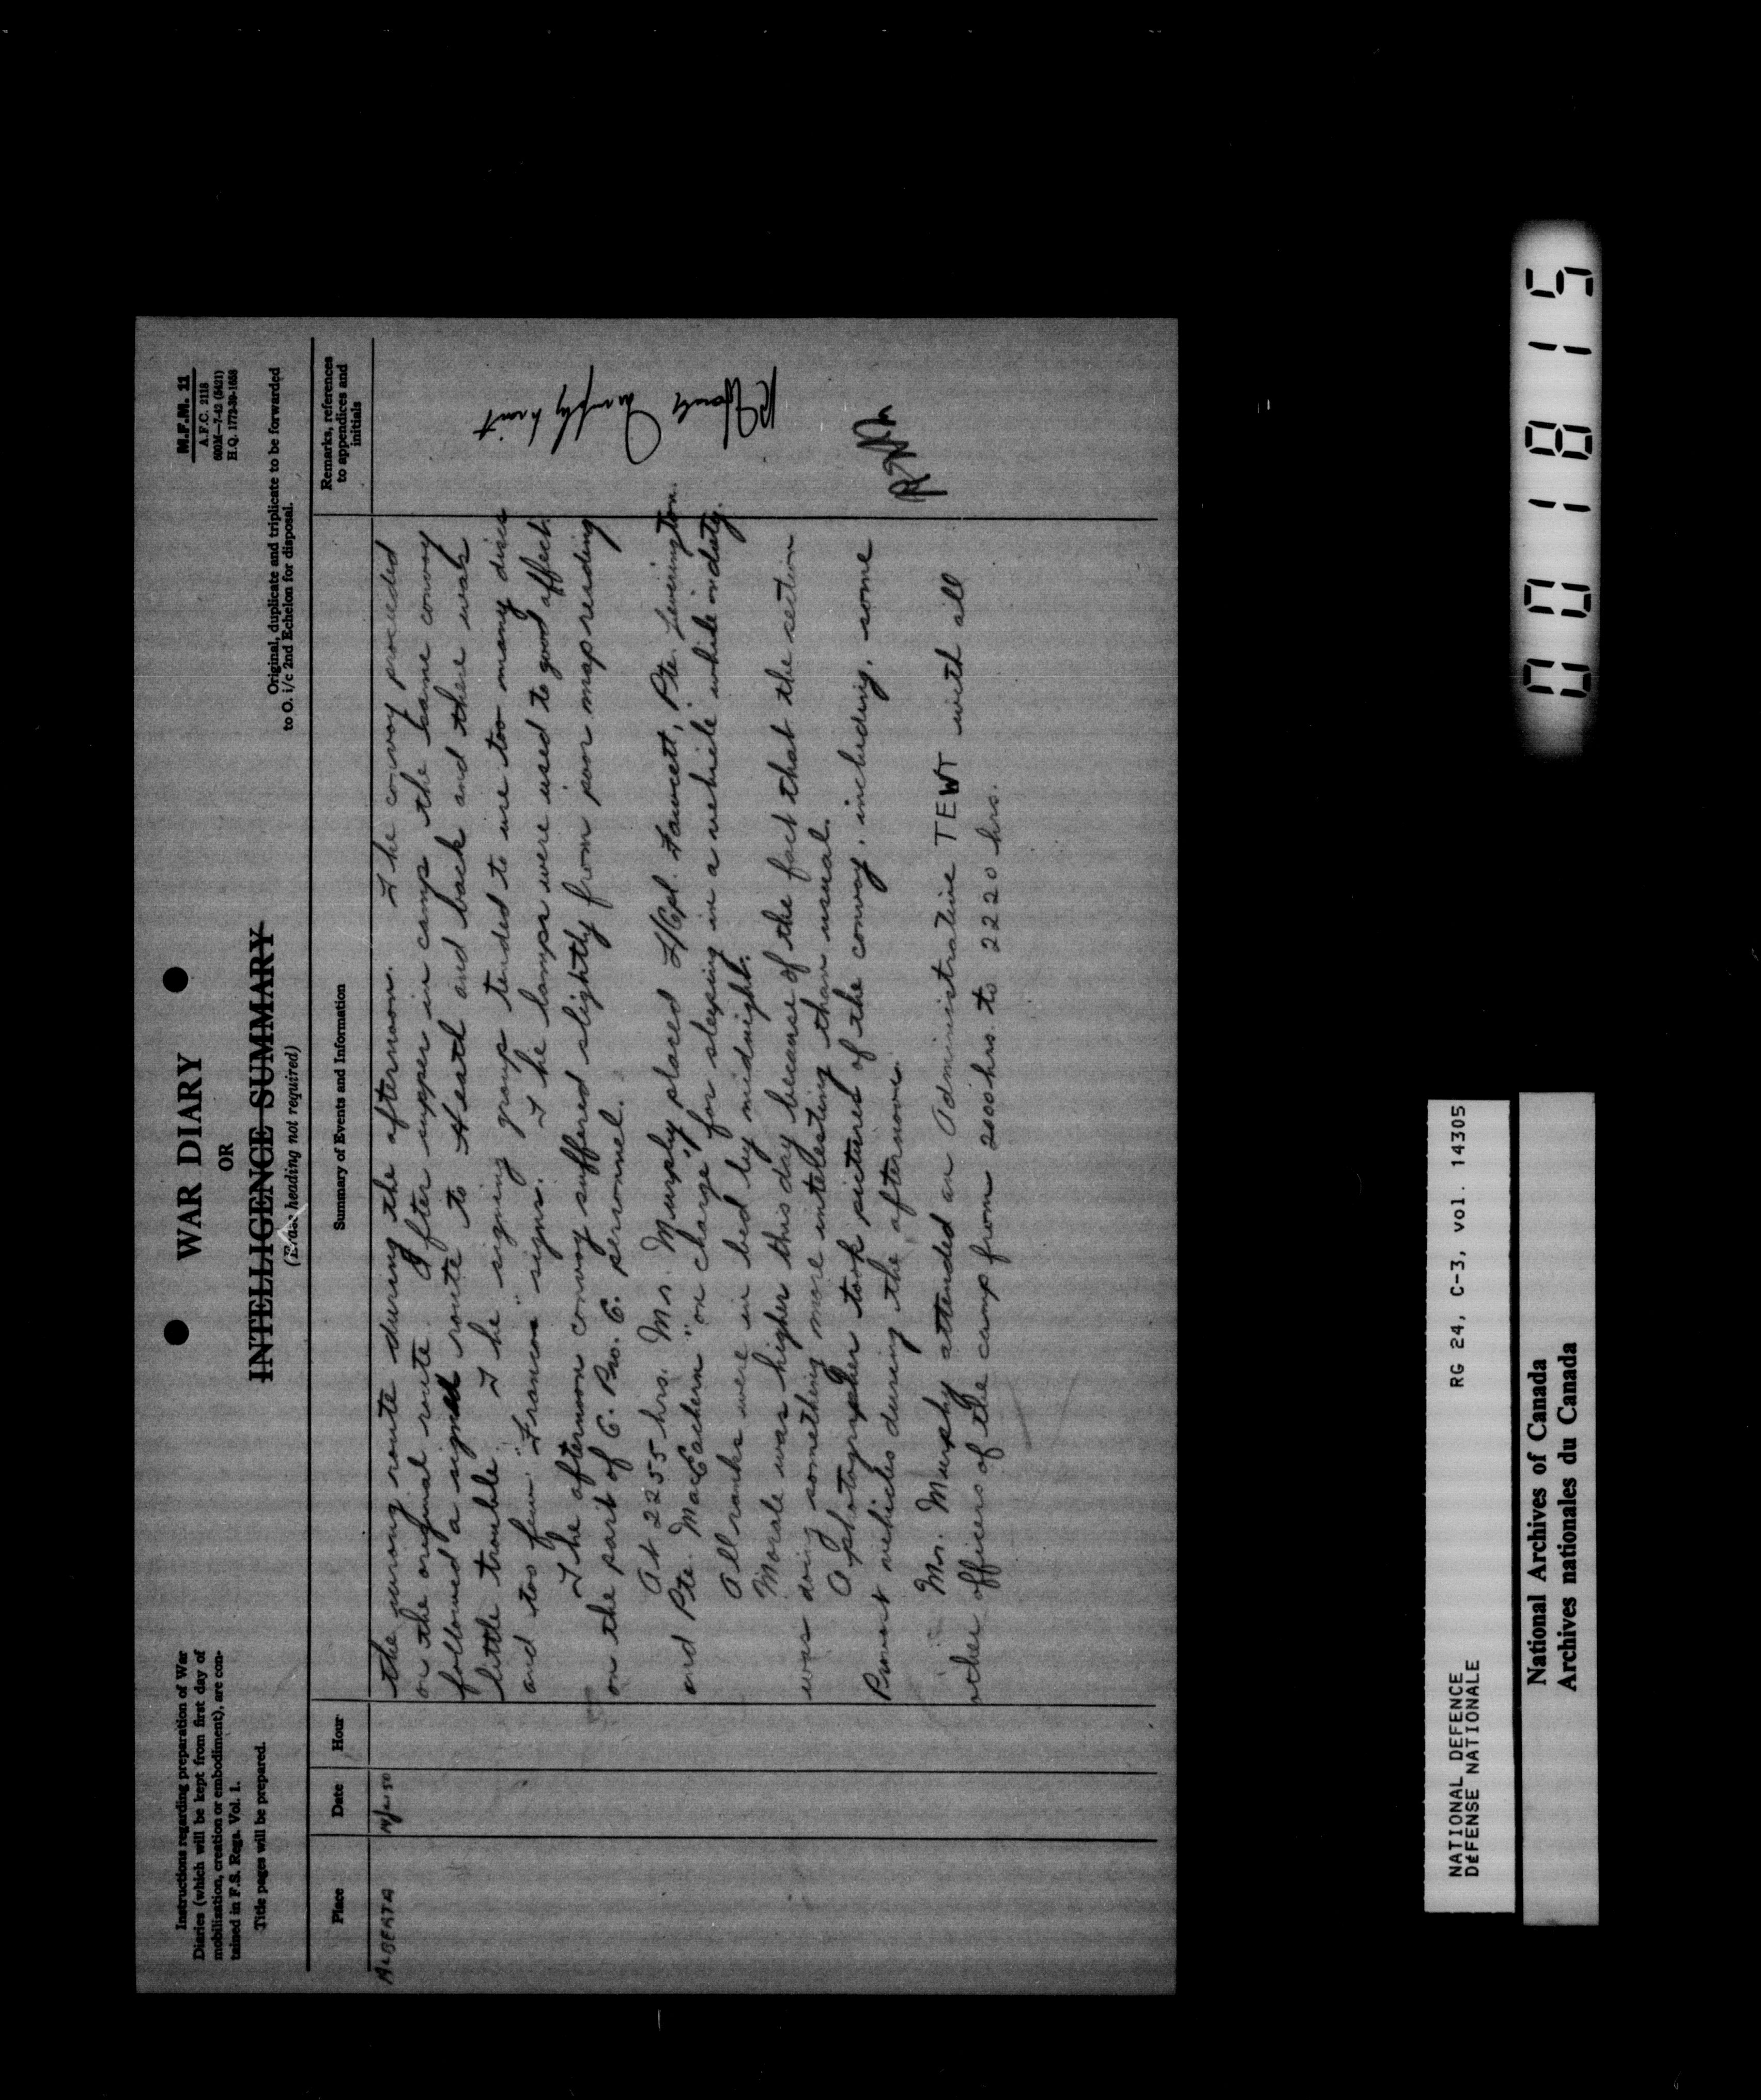 Instructions regarding preparation of War
Diaries (which will be kept from first day of
mobilization, creation or embodiment), are con-
tained in F.S. Regs. Vol. 1.
Title pages will be prepared.
WAR DIARY
OR
INTELLIGENCE SUMMARY
(Erase heading not required)
M.F.M. 11
A.F.C. 2118
600M—7-42 (5421)
H.Q. 1772-39-1658
Original, duplicate and triplicate to be forwarded
to O. i/c 2nd Echelon for disposal.
Place Date Hour Summary of Events and Information Remarks, references
to appendices and
initials
ALBERTA
the wrong route during the afternoon. The convoy proceeded
on the original route. After supper in camp the same convoy
followed a signed route to Heath and back and there was
little trouble. The signing group tended to use too many discs
and too few "Francos" signs. The lamps were used to good affect.
The afternoon convoy suffered slightly from poor map reading
on the part of C. Pro. C. personnel.
At 2255 hrs. Mr. Murphy placed L/Cpl. Fawcett, Pte. Livington.
and Pte. MacEachern "on charge" for sleeping in a vehicle while on duty.
All ranks were in bed by midnight.
Morale was higher this day because of the fact that the section
was doing something more interesting than usual.
A photographer took pictures of the convoy, including, some
Provost vehicles during the afternoon.
Mr. Murphy attended an Administrative TEWT with all
other officers of the camp from 2000 hrs. to 2220 hrs.
NATIONAL DEFENCE RG 24, C-3, vol. 14305
DÉFENSE NATIONALE
National Archives of Canada
Archives nationales du Canada
001815